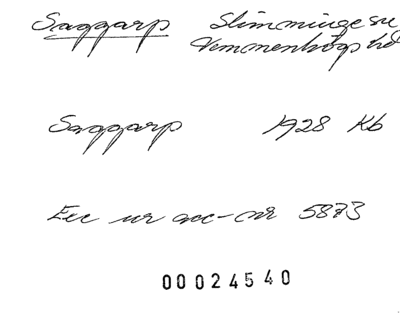 Saggarp Slimminge sn
Vemmenhögs hd
Saggarp 1928 Kb
Exc ur acc-nr 5873
00024540